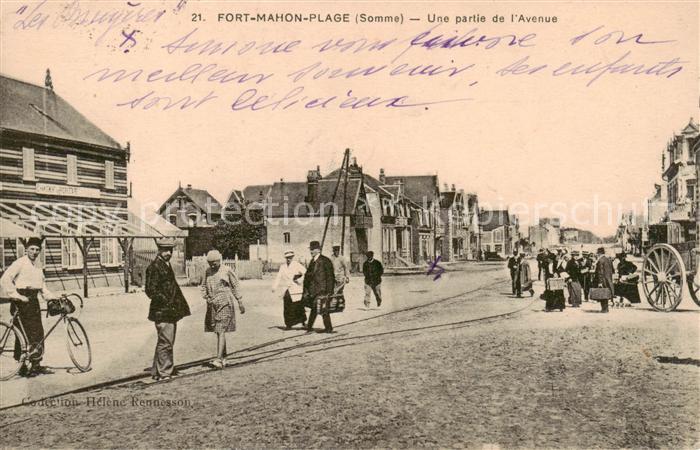 "Les Bruyères"
21. FORT-MAHON-PLAGE (Somme) — Une partie de l'Avenue
x Simone vous envoie son
meilleur souvenir, ses enfants
sont délicieux.
Collection Hélène Rennesson
copyright by postcards